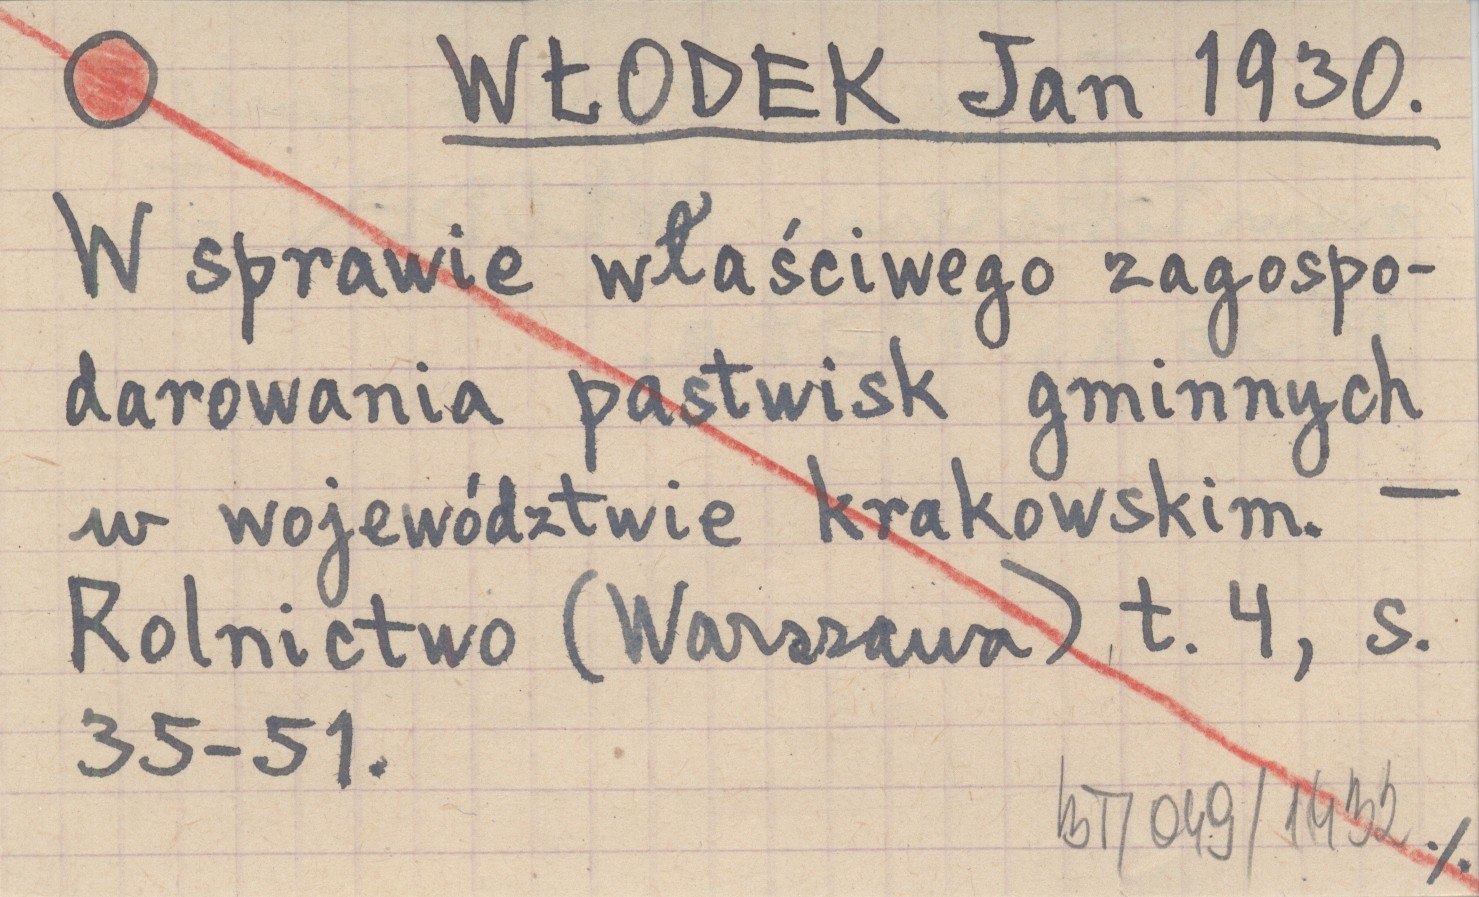 WŁODEK Jan 1930.
W sprawie właściwego zagospo-
darowania pastwisk gminnych
w województwie krakowskim. —
Rolnictwo (Warszawa) t. 4, s.
35-51.
BT/049/1432 ./.